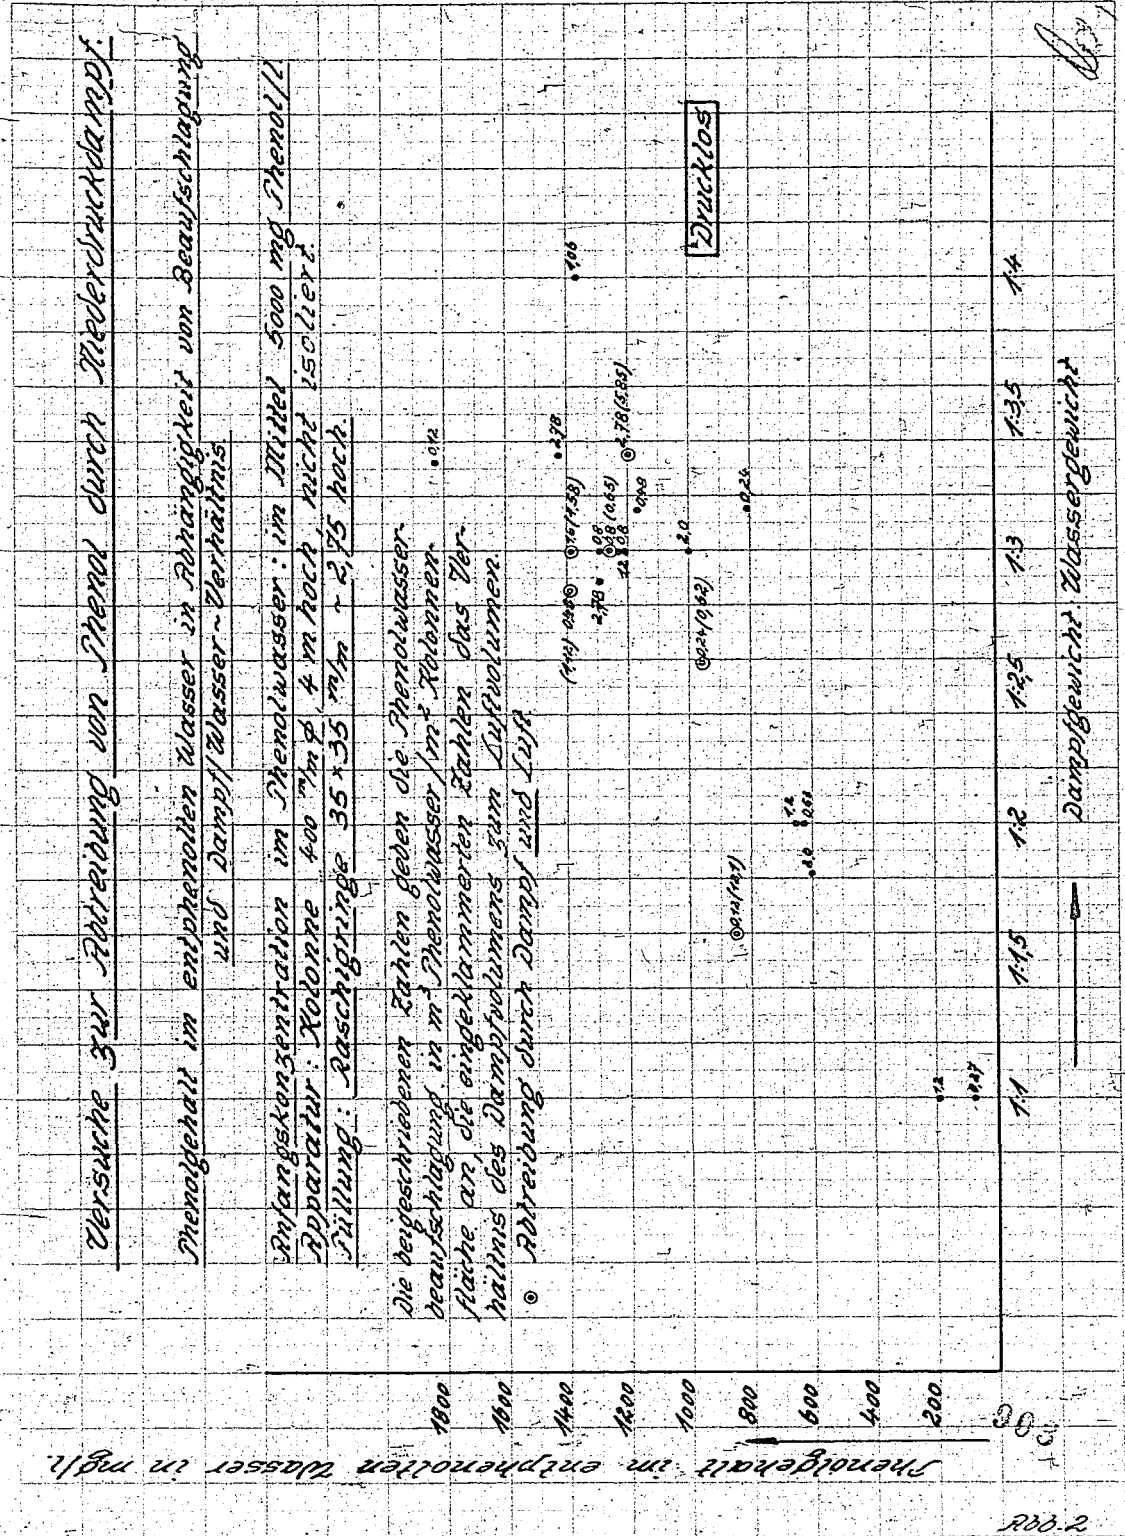 Versuche zur Abtreibung von Phenol durch Niederdruckdampf.
Phenolgehalt im entphenolten Wasser in Abhängigkeit von Beaufschlagung
und Dampf/Wasser-Verhältnis.
Anfangskonzentration im Phenolwasser: im Mittel 5000 mg Phenol/l.
Apparatur: Kolonne 400 m/m ø, 4 m hoch, nicht isoliert.
Füllung: Raschigringe 35 × 35 m/m ~ 2,75 hoch.
Die beigeschriebenen Zahlen geben die Phenolwasser-
beaufschlagung in m³ Phenolwasser/m² Kolonnen-
fläche an, die eingeklammerten Zahlen das Ver-
hältnis des Dampfvolumens zum Luftvolumen.
⊙ Abtreibung durch Dampf und Luft.
Drucklos
Phenolgehalt im entphenolten Wasser in mg/l.
1800
1600
1400
1200
1000
800
600
400
200
0,12
2,78
1,06
1,6 (1,58)
2,78
0,8
0,8 (0,65)
1,2
0,8
0,49
2,78 (5,85)
2,0
0,24 (0,62)
0,24
1,2
0,68
2,0
1,2
1:1
1:1,5
1:2
1:2,5
1:3
1:3,5
1:4
Dampfgewicht: Wassergewicht
Abb. 2